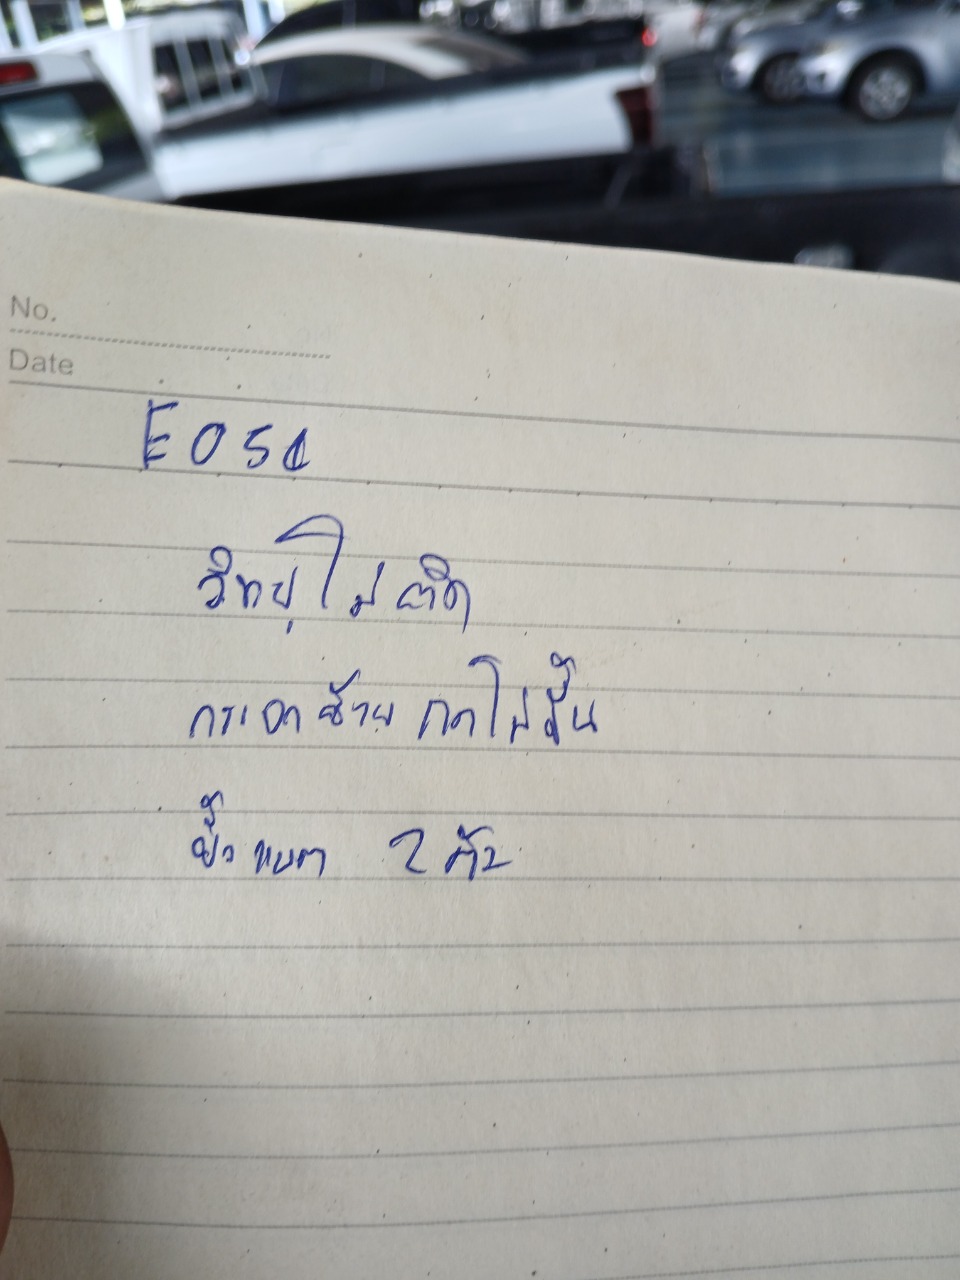 No.
Date
E051
วิทยุไม่ติด
กระจกซ้าย กดไม่ขึ้น
ขั้วแบต 2 ตัว